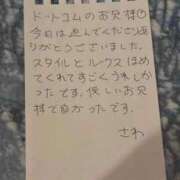 ドットコムのお兄様①
今日は遊んでくださり
ありがとうございました。
スタイルとルックスほめ
てくれてすごくうれしかっ
たです。優しいお兄
様で良かったです。
さわ